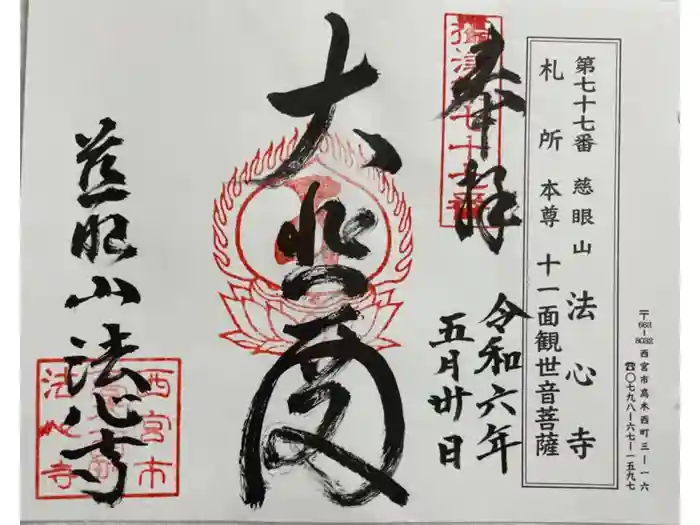 〒662-8032 西宮市高木西町三ー一六
☎〇七九八ー六七ー一五九七
第七十七番 慈眼山 法心寺
札所 本尊 十一面観世音菩薩
奉拝
令和六年
五月廿日
大悲閣
慈眼山法心寺
西宮市
法心寺